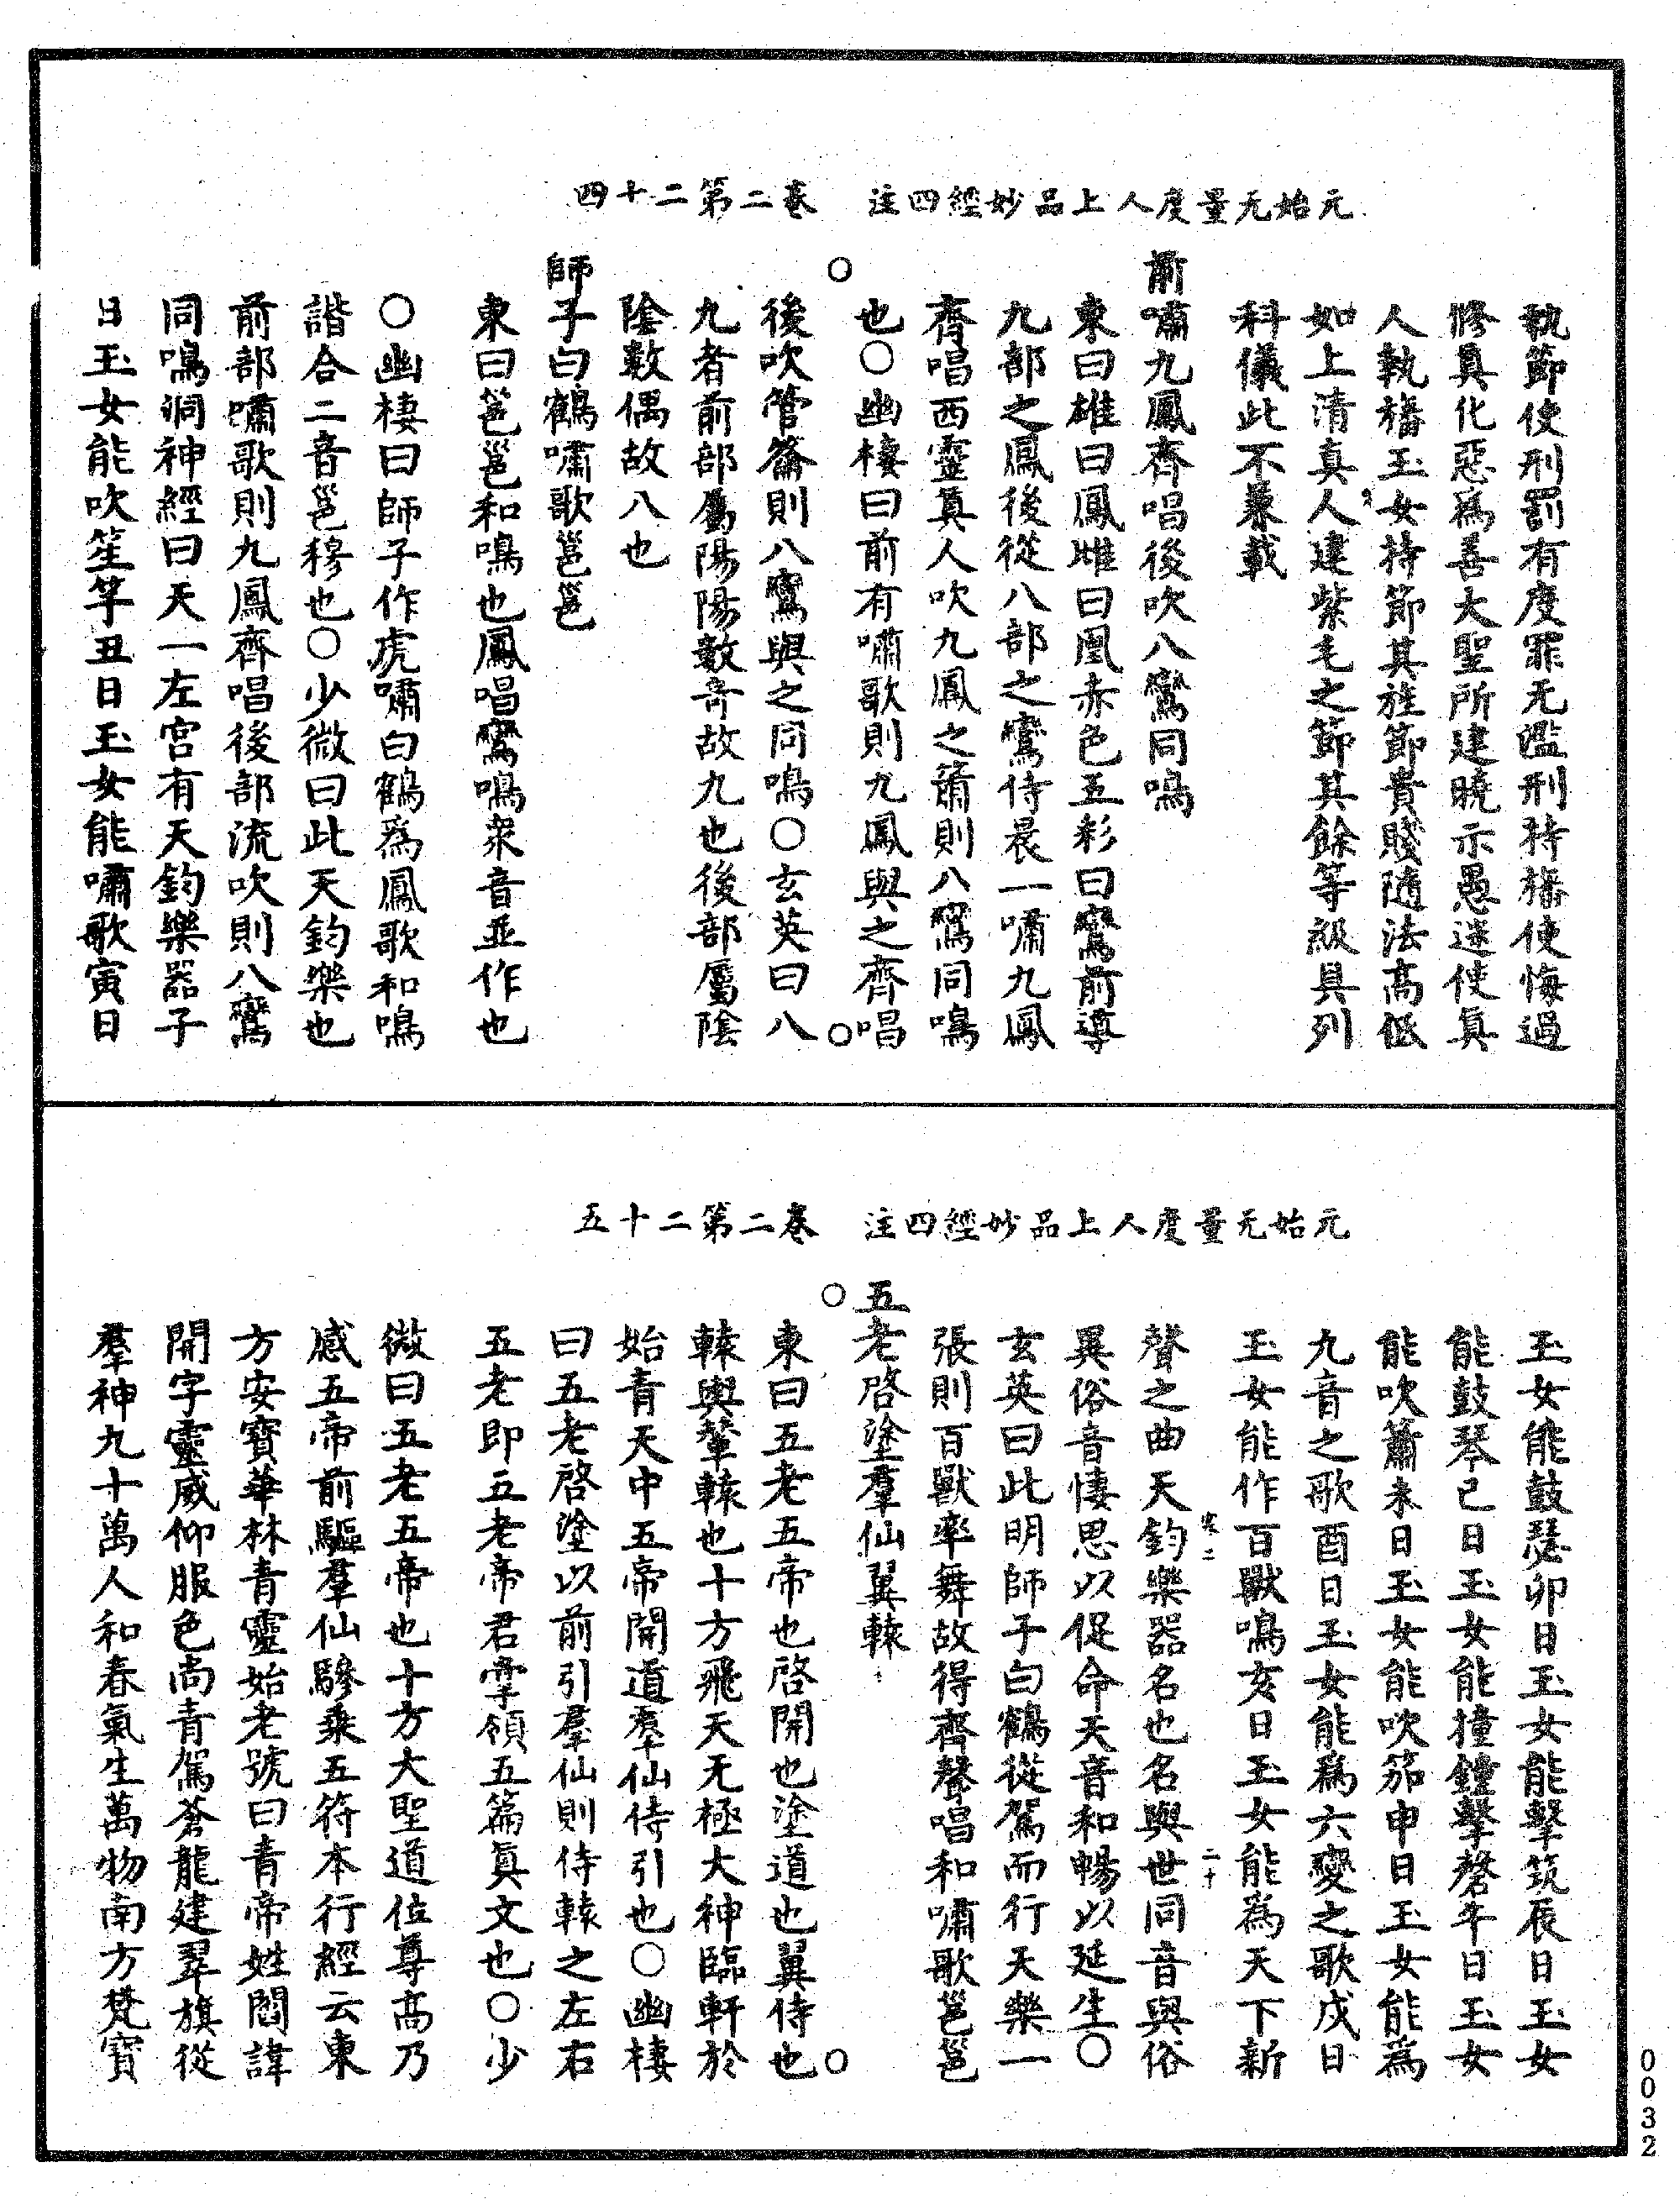 元始无量度人上品妙經四注　卷二第二十四
執節使刑罰有度罪无濫刑持旛使悔過
修真化惡爲善大聖所建曉示愚迷使真
人執旛玉女持節其旌節貴賤隨法高低
如上清真人建紫毛之節其餘等級具列
科儀此不兼載
前嘯九鳳齊唱後吹八鸞同鳴
東曰雄曰鳳雌曰凰赤色五彩曰鸞前導
九部之鳳後從八部之鸞侍晨一嘯九鳳
齊唱西靈真人吹九鳳之簫則八鸞同鳴
也〇幽棲曰前有嘯歌則九鳳與之齊唱
後吹管籥則八鸞與之同鳴〇玄英曰八
九者前部屬陽陽數奇故九也後部屬陰
陰數偶故八也
師子白鶴嘯歌邕邕
東曰邕邕和鳴也鳳唱鸞鳴衆音並作也
〇幽棲曰師子作虎嘯白鶴爲鳳歌和鳴
諧合二音邕穆也〇少微曰此天鈞樂也
前部嘯歌則九鳳齊唱後部流吹則八鸞
同鳴洞神經曰天一左宮有天鈞樂器子
日玉女能吹笙竽丑日玉女能嘯歌寅日
元始无量度人上品妙經四注　卷二第二十五
玉女能鼓瑟卯日玉女能擊筑辰日玉女
能鼓琴巳日玉女能撞鐘擊磬午日玉女
能吹簫未日玉女能吹笳申日玉女能爲
九音之歌酉日玉女能爲六變之歌戌日
玉女能作百獸鳴亥日玉女能為天下新
聲之曲天鈞樂器名也名與世同音與俗
卷二
二十
異俗音悽思以促命天音和暢以延生〇
玄英曰此明師子白鶴從駕而行天樂一
張則百獸率舞故得齊聲唱和嘯歌邕邕
五老啓塗羣仙翼轅
東曰五老五帝也啓開也塗道也翼侍也
轅輿輦轅也十方飛天无極大神臨軒於
始青天中五帝開道羣仙侍引也〇幽棲
曰五老啓塗以前引羣仙則侍轅之左右
五老即五老帝君掌領五篇真文也〇少
微曰五老五帝也十方大聖道位尊高乃
感五帝前驅羣仙驂乘五符本行經云東
方安寶華林青靈始老號曰青帝姓閻諱
開字靈威仰服色尚青駕蒼龍建翠旗從
羣神九十萬人和春氣生萬物南方梵寶
0032